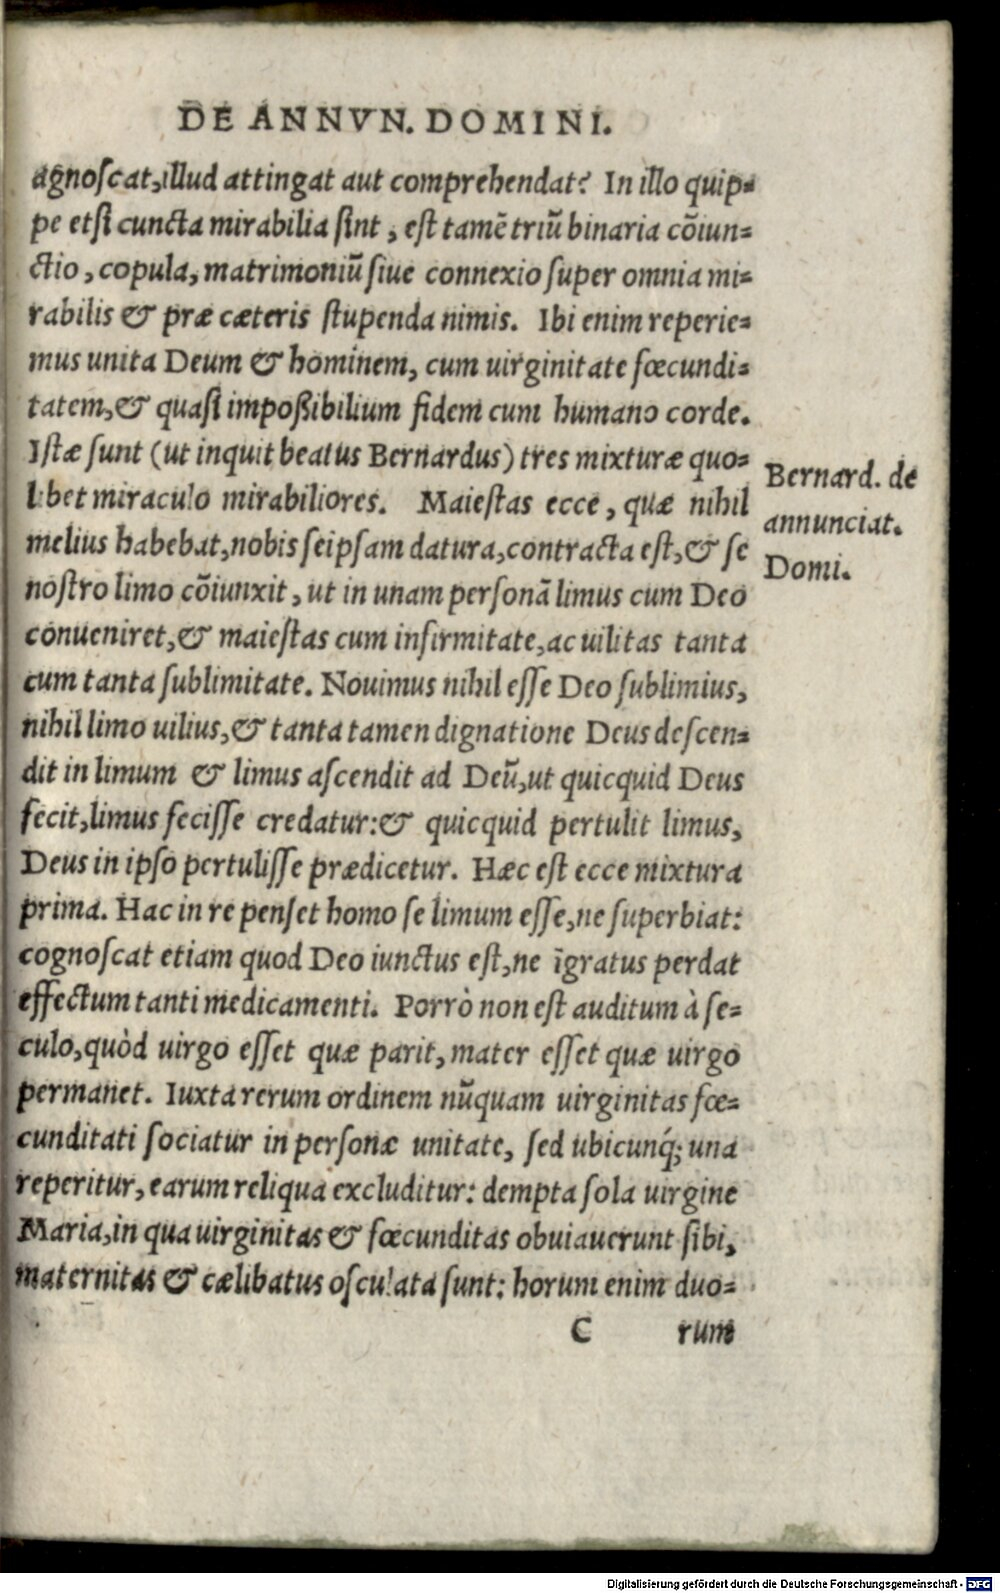 DE ANNVN. DOMINI.
agnoscat, illud attingat aut comprehendat? In illo quip=
pe etsi cuncta mirabilia sint, est tamē triū binaria cōiun=
ctio, copula, matrimoniū siue connexio super omnia mi=
rabilis & præ cæteris stupenda nimis. Ibi enim reperie=
mus unita Deum & hominem, cum uirginitate fœcundi=
tatem, & quasi impoßibilium fidem cum humano corde.
Istæ sunt (ut inquit beatus Bernardus) tres mixturæ quo=
libet miraculo mirabiliores. Maiestas ecce, quæ nihil
melius habebat, nobis seipsam datura, contracta est, & se
nostro limo cōiunxit, ut in unam personā limus cum Deo
conueniret, & maiestas cum infirmitate, ac uilitas tanta
cum tanta sublimitate. Nouimus nihil esse Deo sublimius,
nihil limo uilius, & tanta tamen dignatione Deus descen=
dit in limum & limus ascendit ad Deū, ut quicquid Deus
fecit, limus fecisse credatur: & quicquid pertulit limus,
Deus in ipso pertulisse prædicetur. Hæc est ecce mixtura
prima. Hac in re penset homo se limum esse, ne superbiat:
cognoscat etiam quod Deo iunctus est, ne īgratus perdat
effectum tanti medicamenti. Porrò non est auditum à se=
culo, quòd uirgo esset quæ parit, mater esset quæ uirgo
permanet. Iuxta rerum ordinem nūquam uirginitas fœ=
cunditati sociatur in personæ unitate, sed ubicunq́; una
reperitur, earum reliqua excluditur: dempta sola uirgine
Maria, in qua uirginitas & fœcunditas obuiauerunt sibi,
maternitas & cælibatus osculata sunt: horum enim duo=
C rum
Bernard. de
annunciat.
Domi.
Digitalisierung gefördert durch die Deutsche Forschungsgemeinschaft - DFG